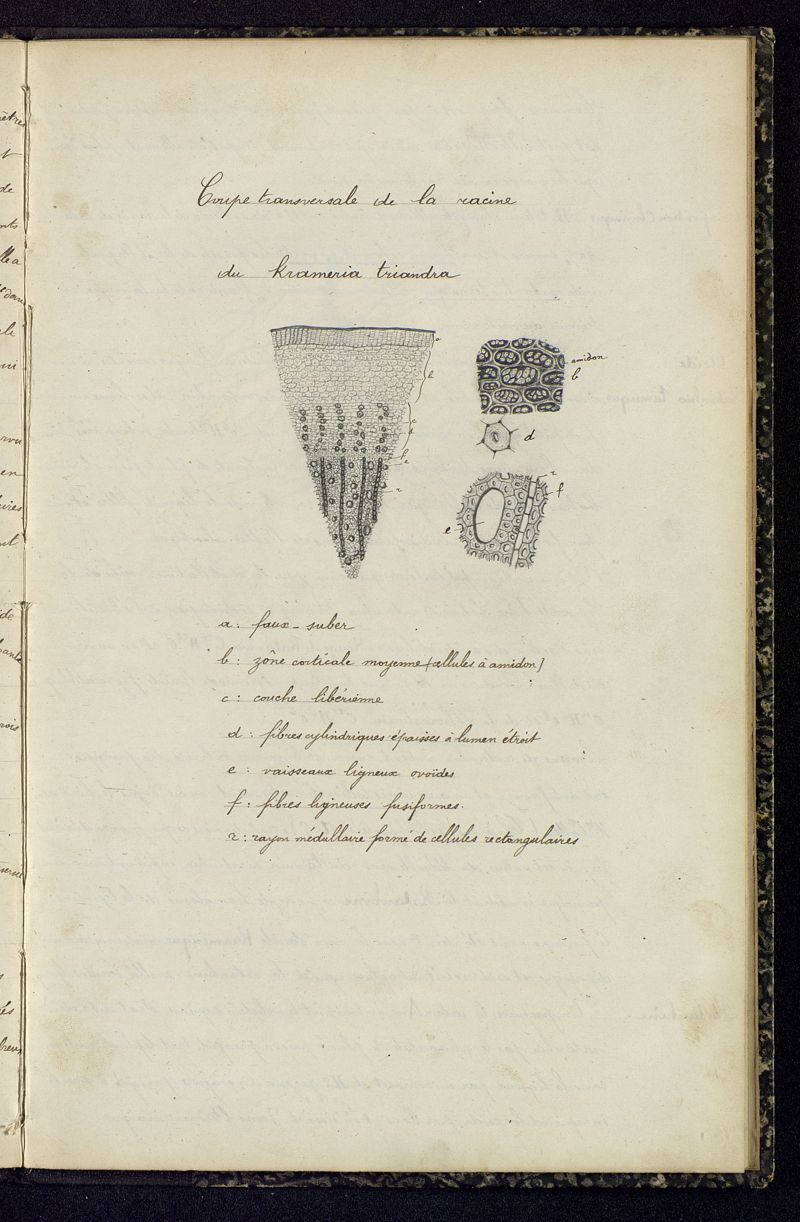 Coupe transversale de la racine
du Krameria triandra
a
b
c
d
f
e
r
amidon
b
d
r
f
e
a : faux-suber
b : zône corticale moyenne (cellules à amidon)
c : couche libérienne
d : fibres cylindriques épaisses à lumen étroit
e : vaisseaux ligneux ovoïdes
f : fibres ligneuses fusiformes.
r : rayon médullaire formé de cellules rectangulaires